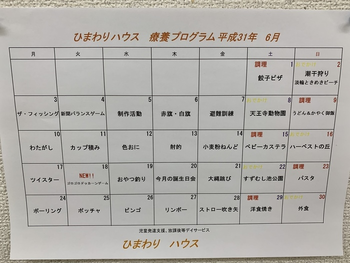 ひまわりハウス 療養プログラム 平成31年 6月
月 火 水 木 金 土 日
1 2
調理
餃子ピザ 潮干狩り
淡輪ときめきビーチ
3 4 5 6 7 8 9
調理
ザ・フィッシング 新聞バランスゲーム 制作活動 赤旗・白旗 避難訓練 天王寺動物園 うどん&かやく御飯
10 11 12 13 14 15 16
調理
わたがし カップ積み 色おに 射的 小麦粉ねんど ベビーカステラ ハーベストの丘
17 18 19 20 21 22 23
NEW!! 調理
ツイスター おやつ釣り 今月の誕生日会 大縄跳び すずむし池公園 パスタ
24 25 26 27 28 29 30
調理
ボーリング ボッチャ ビンゴ リンボー ストロー吹き矢 洋食焼き 外食
児童発達支援、放課後等デイサービス
ひまわり ハウス